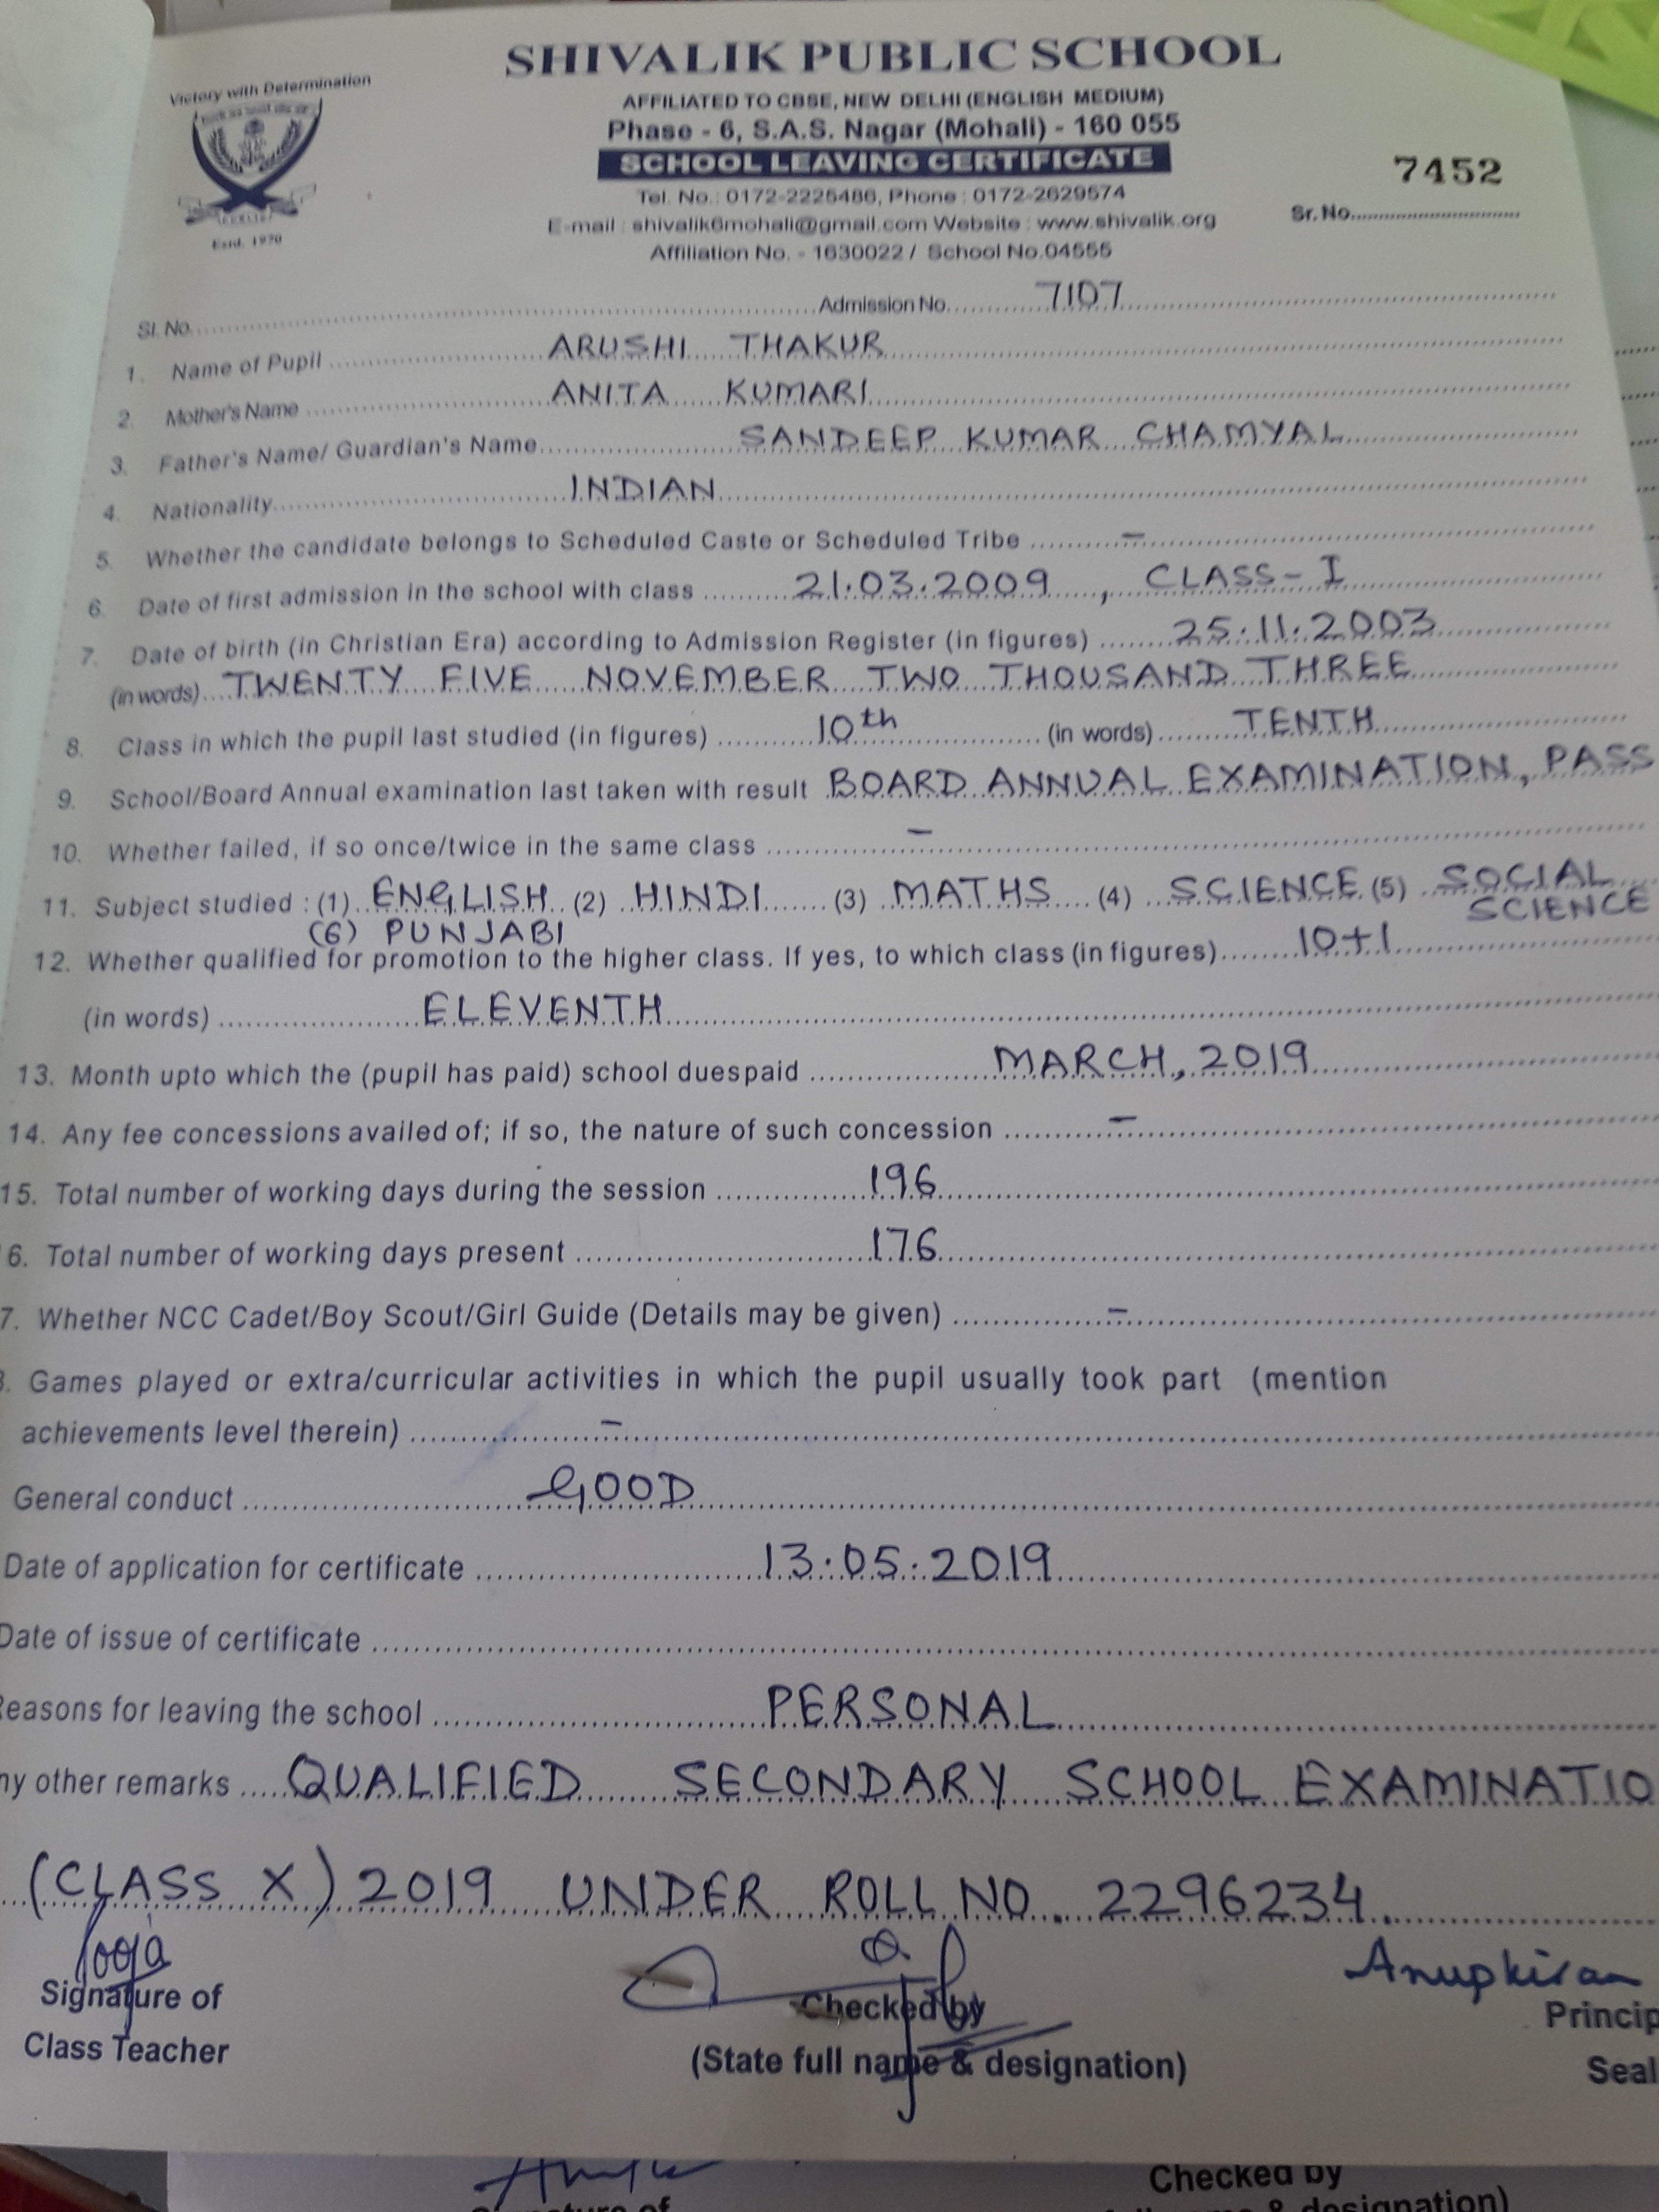 SHIVALIK PUBLIC SCHOOL
Victory with Determination
AFFILIATED TO CBSE, NEW DELHI (ENGLISH MEDIUM)
Phase - 6, S.A.S. Nagar (Mohali) - 160 055
SCHOOL LEAVING CERTIFICATE
7452
Tel. No.: 0172-2225486, Phone : 0172-2629574
Sr. No.
E-mail : shivalik6mohali@gmail.com Website : www.shivalik.org
Estd. 1970
Affiliation No. - 1630022 / School No.04555
Sl. No. Admission No. 7107
1. Name of Pupil ARUSHI THAKUR
2. Mother's Name ANITA KUMARI
3. Father's Name/ Guardian's Name SANDEEP KUMAR CHAMYAL
4. Nationality INDIAN
5. Whether the candidate belongs to Scheduled Caste or Scheduled Tribe –
6. Date of first admission in the school with class 21.03.2009, CLASS-I
7. Date of birth (in Christian Era) according to Admission Register (in figures) 25.11.2003
(in words) TWENTY FIVE NOVEMBER TWO THOUSAND THREE
8. Class in which the pupil last studied (in figures) 10th (in words) TENTH
9. School/Board Annual examination last taken with result BOARD ANNUAL EXAMINATION, PASS
10. Whether failed, if so once/twice in the same class –
11. Subject studied : (1) ENGLISH (2) HINDI (3) MATHS (4) SCIENCE (5) SOCIAL SCIENCE
(6) PUNJABI
12. Whether qualified for promotion to the higher class. If yes, to which class (in figures) 10+1
(in words) ELEVENTH
13. Month upto which the (pupil has paid) school duespaid MARCH, 2019
14. Any fee concessions availed of; if so, the nature of such concession –
15. Total number of working days during the session 196
6. Total number of working days present 176
7. Whether NCC Cadet/Boy Scout/Girl Guide (Details may be given) –
8. Games played or extra/curricular activities in which the pupil usually took part (mention
achievements level therein) –
General conduct GOOD
Date of application for certificate 13.05.2019
Date of issue of certificate
Reasons for leaving the school PERSONAL
ny other remarks QUALIFIED SECONDARY SCHOOL EXAMINATIO
(CLASS X) 2019 UNDER ROLL NO. 2296234.
Pooja
Anupkiran
Signature of
Class Teacher
Checked by
(State full name & designation)
Princip
Seal
Checked by